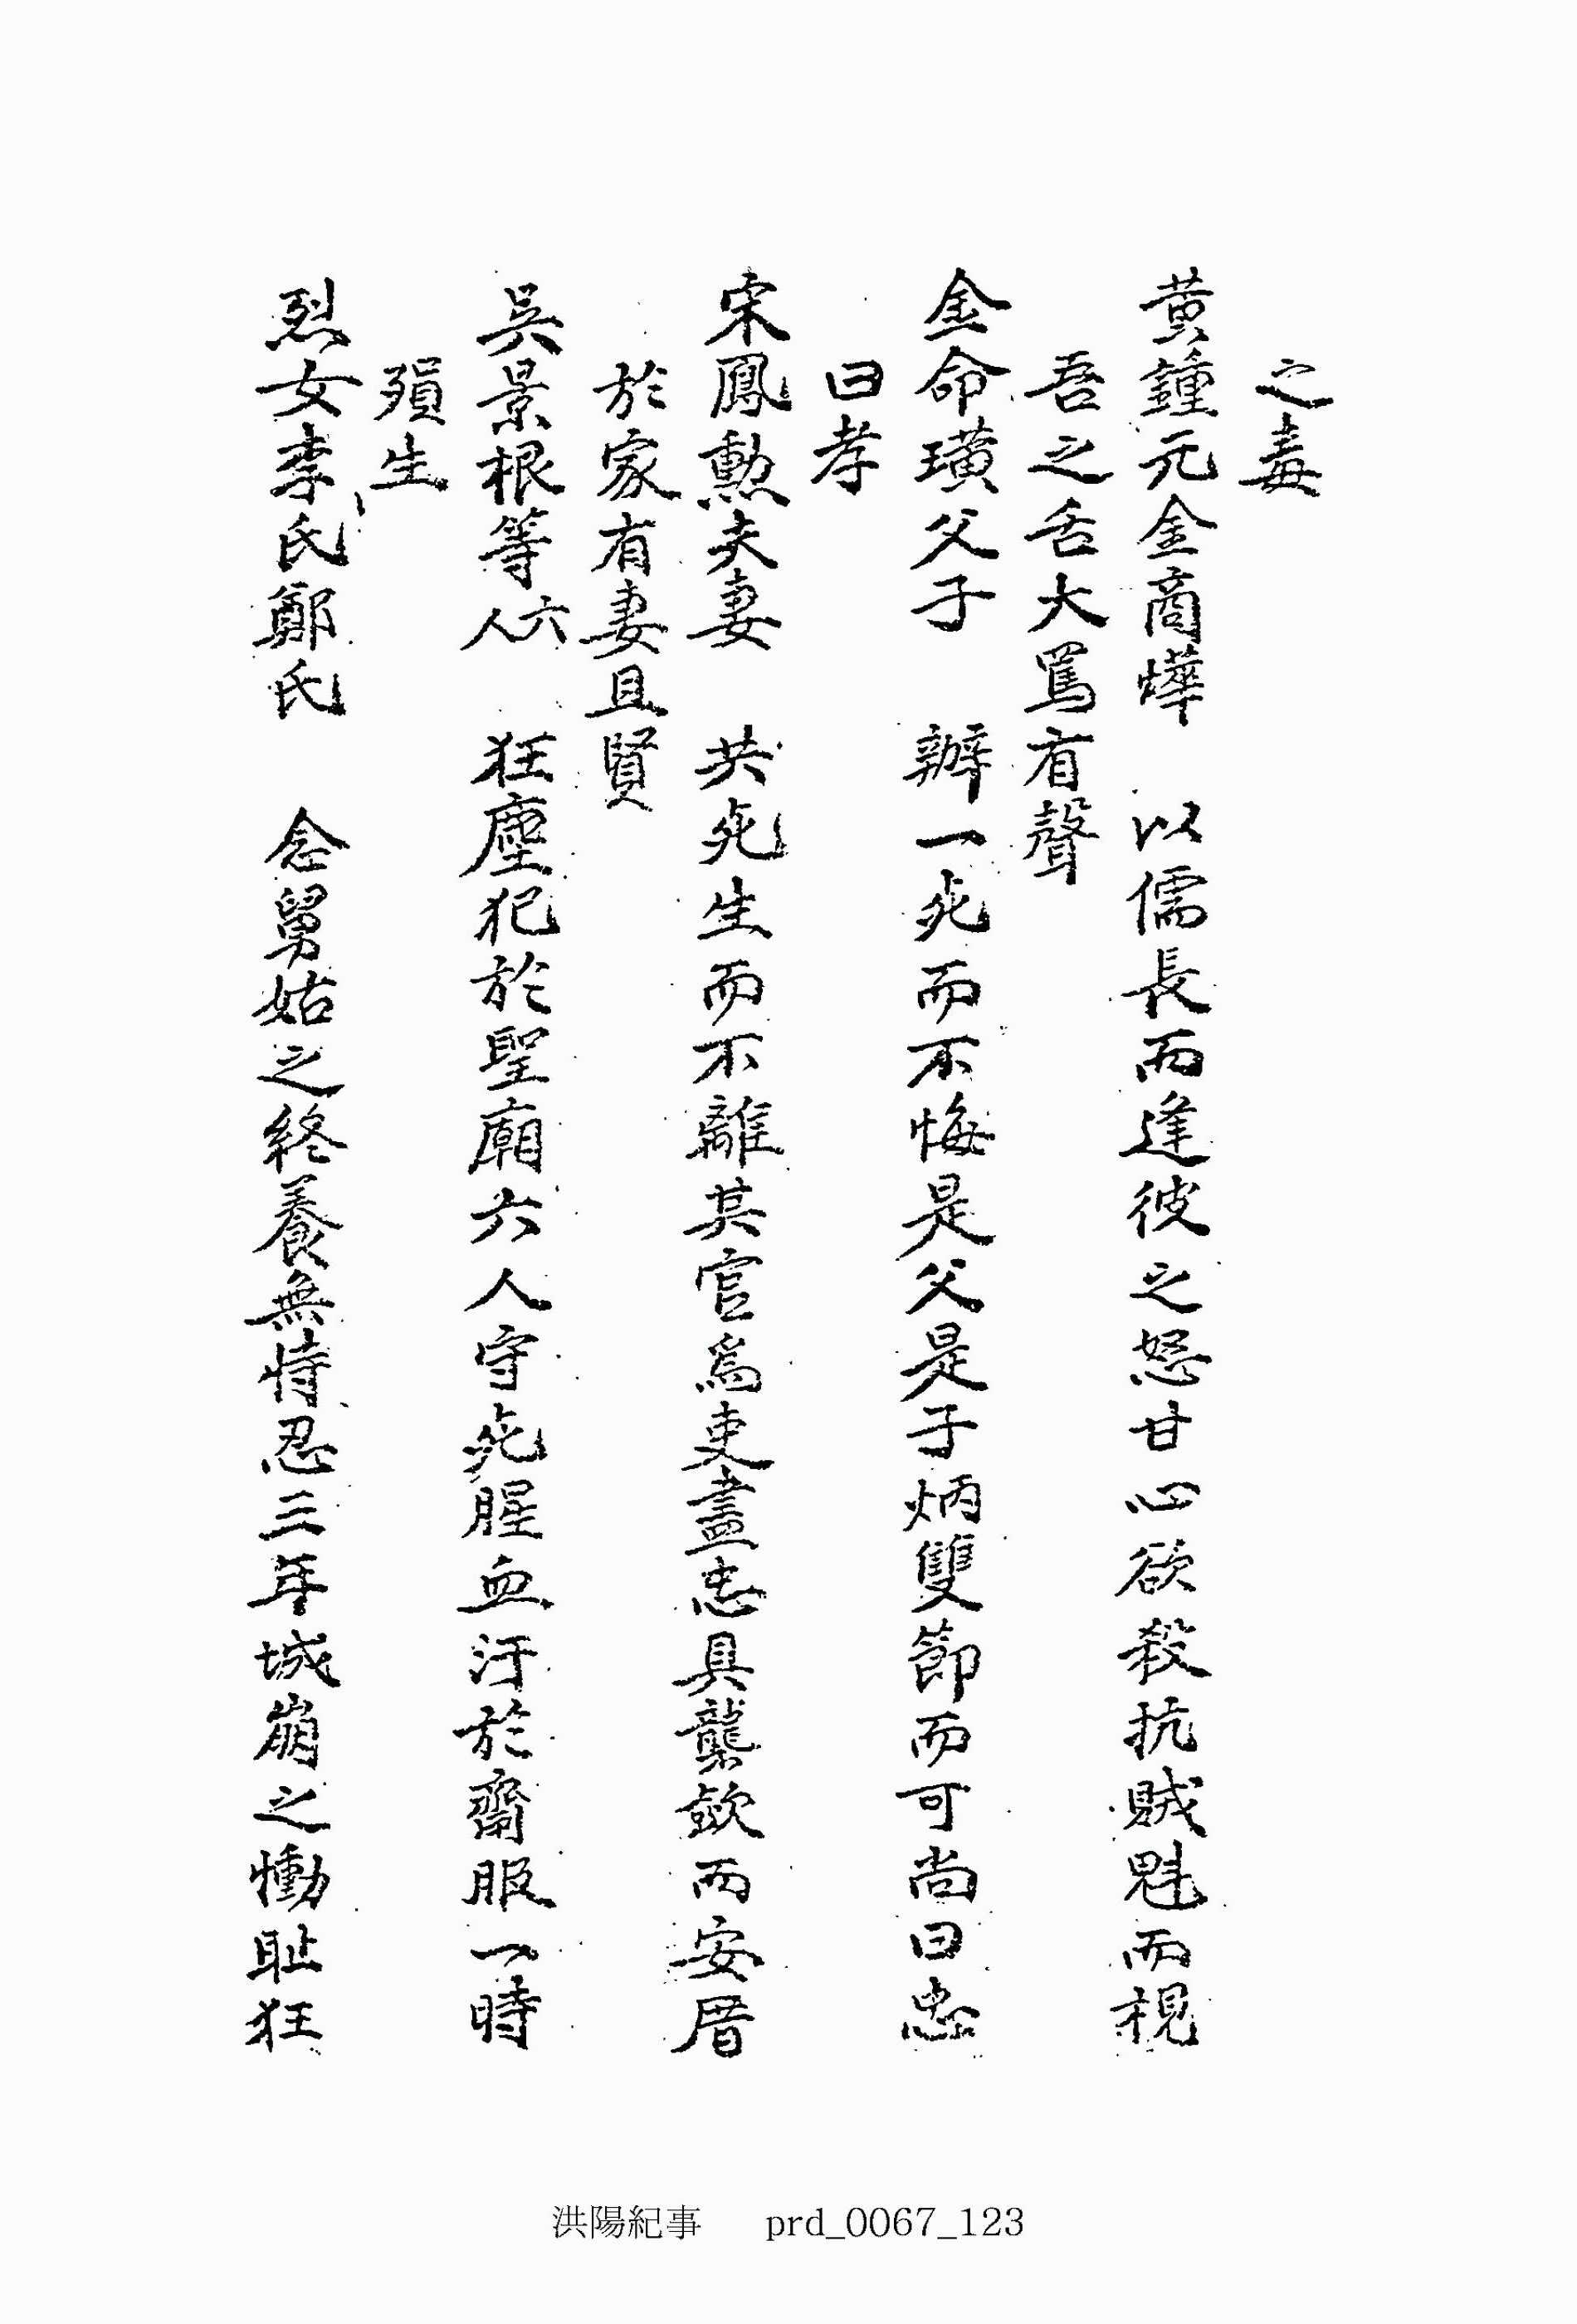 之毒
黃鍾元金商燁 以儒長而逢彼之怒甘心欲殺抗賊魁而視
吾之舌大罵有聲
金命璜父子 辦一死而不悔是父是子炳雙節而可尚曰忠
曰孝
宋鳳勳夫妻 共死生而不離其官爲吏盡忠具襲斂而安厝
於家有妻且賢
吳景根等六人 狂塵犯於聖廟六人守死腥血汙於齋服一時
殞生
烈女李氏鄭氏 念舅姑之終養無恃忍三年城崩之慟耻狂
洪陽紀事 prd_0067_123